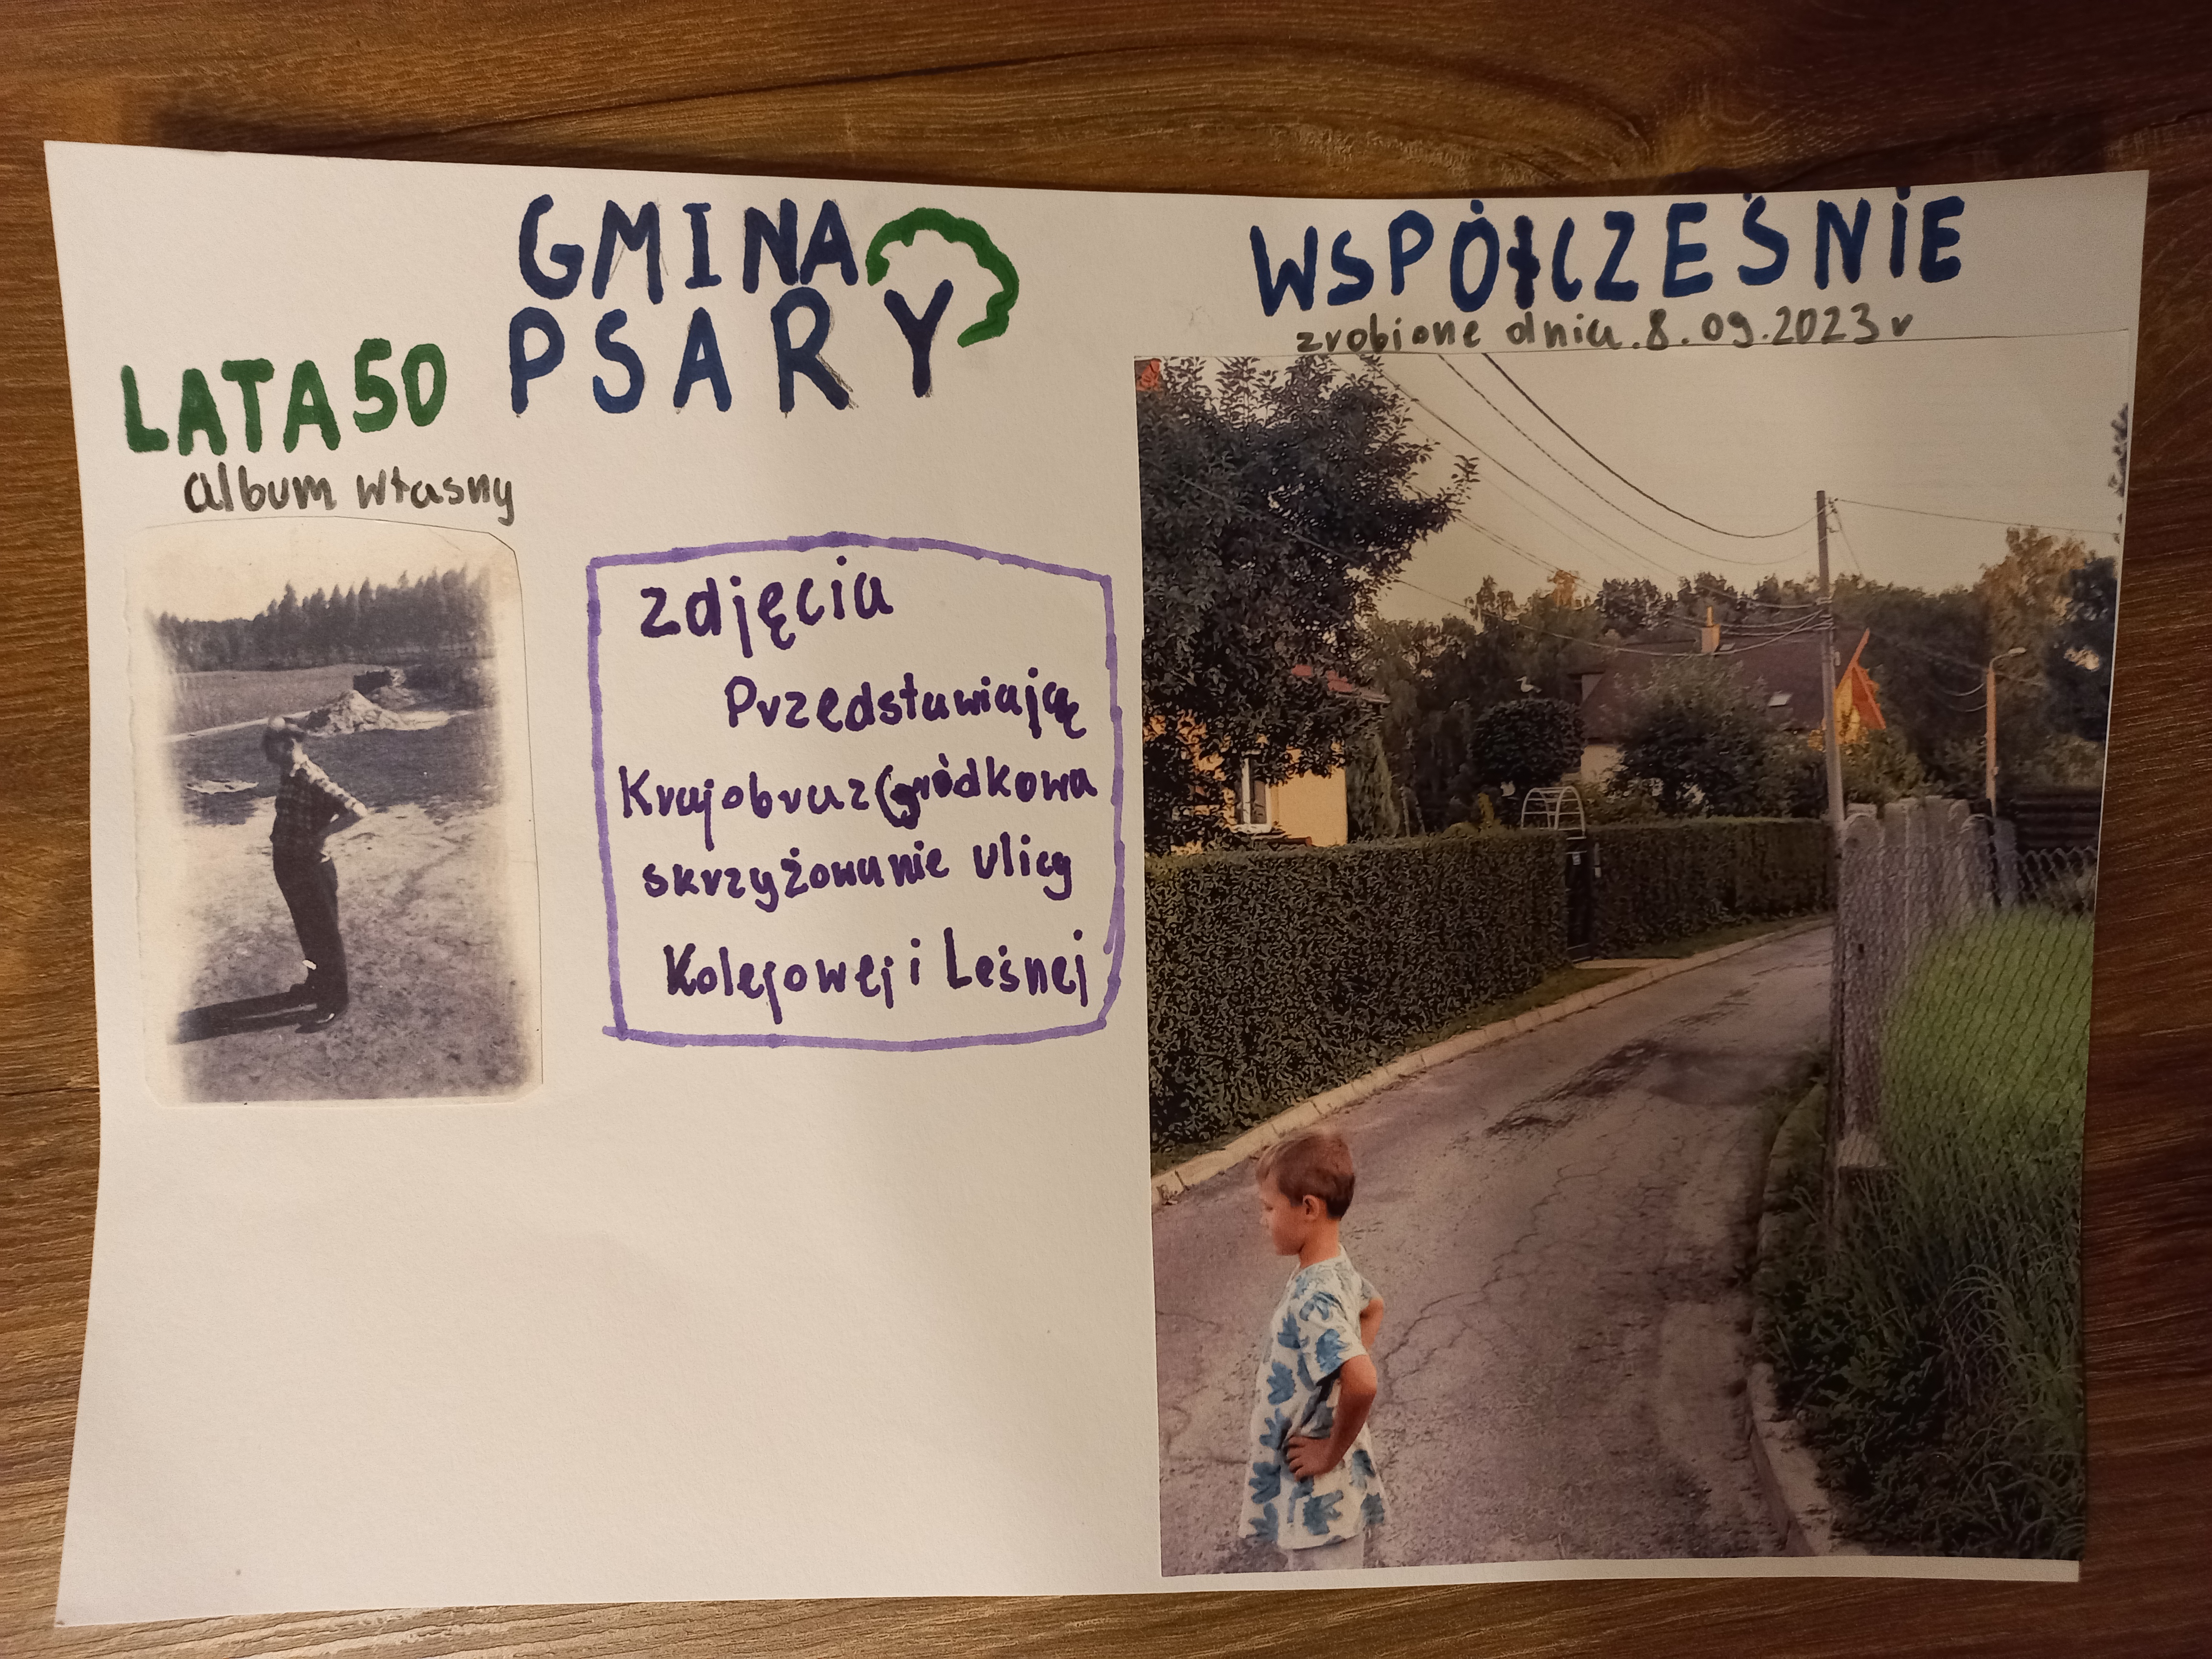 GMINA
PSARY
LATA 50
album własny
zdjęcia
Przedstawiające
Krajobraz Gródkowa
skrzyżowanie ulicy
Kolejowej i Leśnej
WSPÓŁCZEŚNIE
zrobione dnia 8.09.2023 r